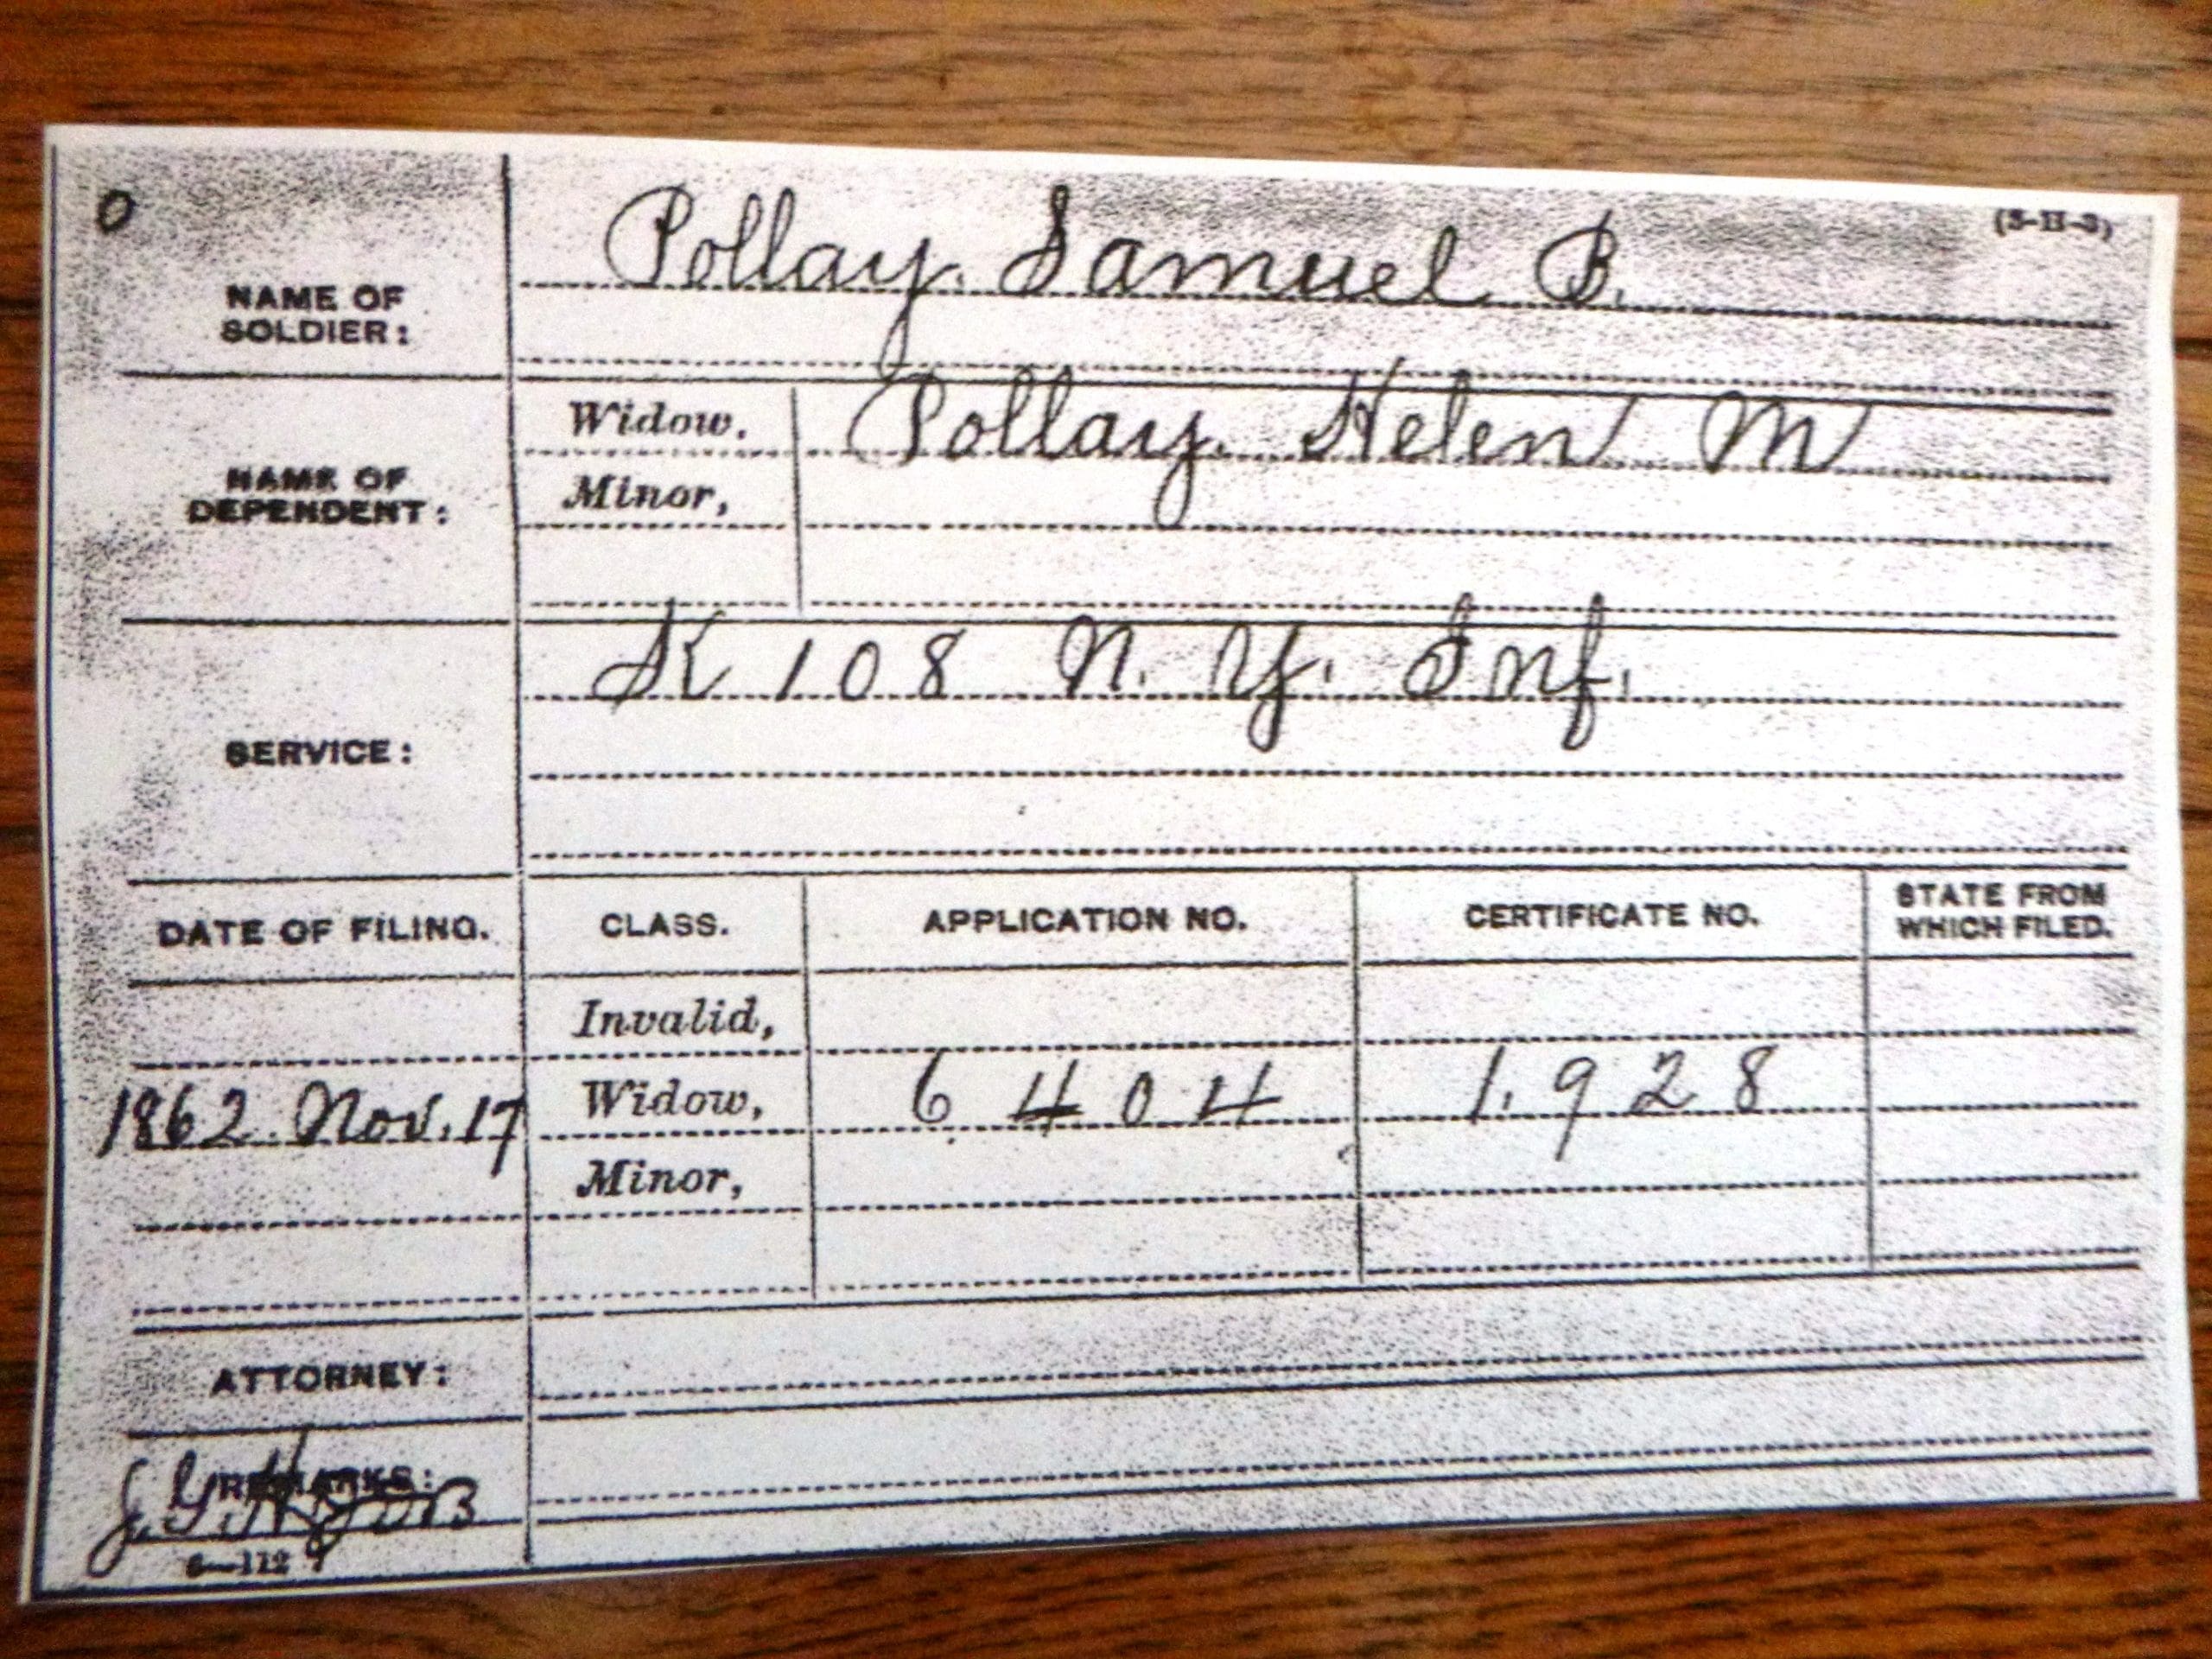 0
(3-11-3)
NAME OF
SOLDIER:
Pollay. Samuel B.
NAME OF
DEPENDENT:
Widow.
Pollay. Helen M
Minor,
SERVICE:
K 108 N. Y. Inf.
DATE OF FILING.
CLASS.
APPLICATION NO.
CERTIFICATE NO.
STATE FROM
WHICH FILED.
Invalid,
1862. Nov. 17
Widow,
6404
1.928
Minor,
ATTORNEY:
REMARKS: